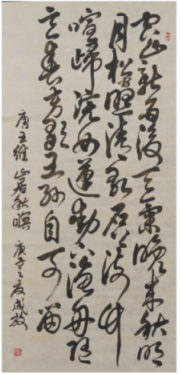 空山新雨後天氣晚來秋明
月松間照清泉石上流竹
喧歸浣女蓮動下漁舟隨
意春芳歇王孫自可留
唐王維山居秋暝庚子之夏